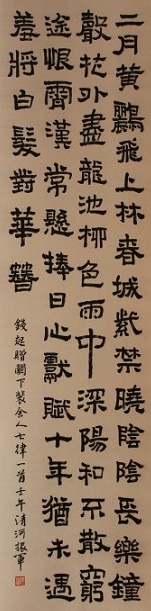 二月黃鸝飛上林春城紫禁曉陰陰長樂鐘
聲花外盡龍池柳色雨中深陽和不散窮
途恨霄漢常懸捧日心獻賦十年猶未遇
羞將白髮對華簪
錢起贈闕下裴舍人七律一首壬午清河振軍